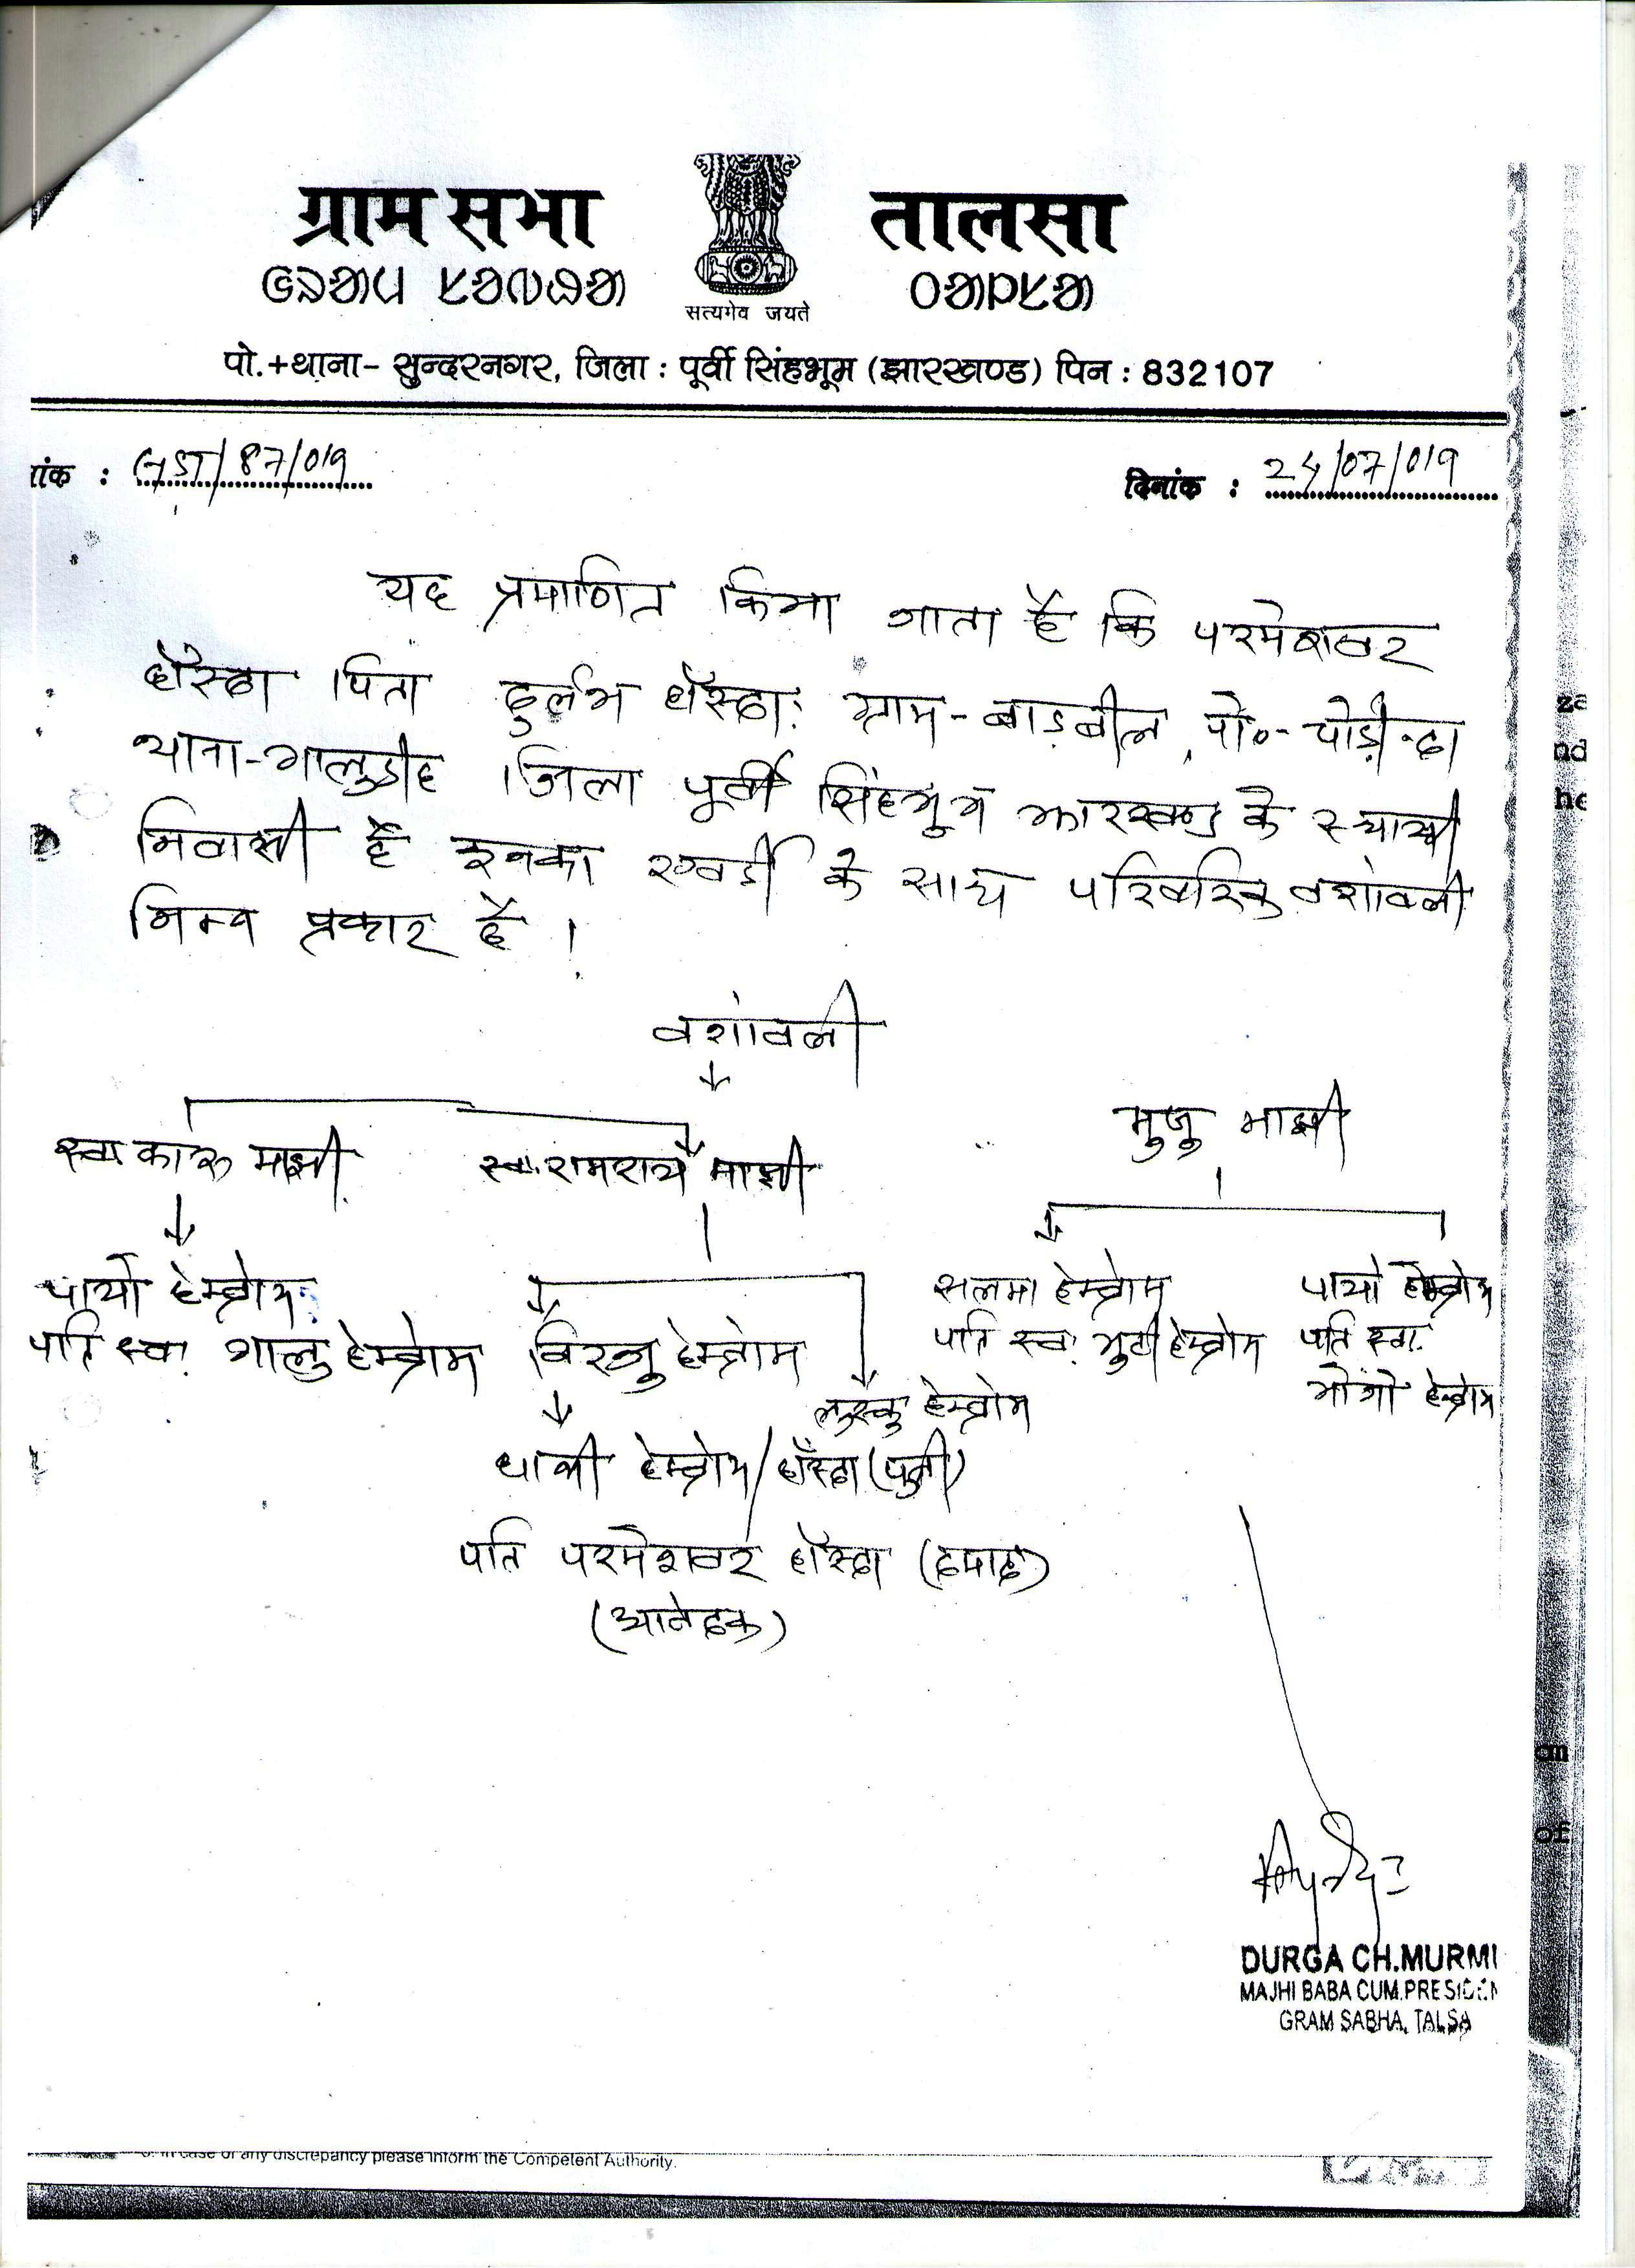 ग्राम सभा तालसा
ᱟᱛᱩ ᱥᱟᱵᱷᱟ ᱛᱟᱞᱥᱟ
सत्यमेव जयते
पो.+थाना- सुन्दरनगर, जिला : पूर्वी सिंहभूम (झारखण्ड) पिन : 832107
ांक : GST/87/019 दिनांक : 24/07/019
यह प्रमाणित किया जाता है कि परमेशवर
हाँसदा पिता दुर्लभ हाँसदा: ग्राम-बाड़बील, पो०-
थाना-गालुडीह जिला पूर्वी सिंहभुम झारखण्ड के स्थायी
निवासी है इनका के साथ परिवारिक वशांवली
निम्न प्रकार है।
वशांवली
स्व कारु माझी स्व. रामराय माझी मुजु माझी
पायो हेम्ब्रोम सलमा हेम्ब्रोम पायो हेम्ब्रोम
पति स्व. गालु हेम्ब्रोम विरजु हेम्ब्रोम पति स्व. हेम्ब्रोम पति स्व.
हेम्ब्रोम हेम्ब्रोम
हेम्ब्रोम/हाँसदा (पुत्री)
पति परमेशवर हाँसदा (दमाद)
(आवेदक)
DURGA CH.MURM
MAJHI BABA CUM.PRESIDEN
GRAM SABHA, TALSA
In case of any discrepancy please inform the Competent Authority.